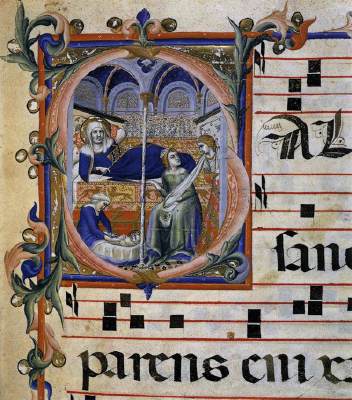 SAL
ſanc
parens enix